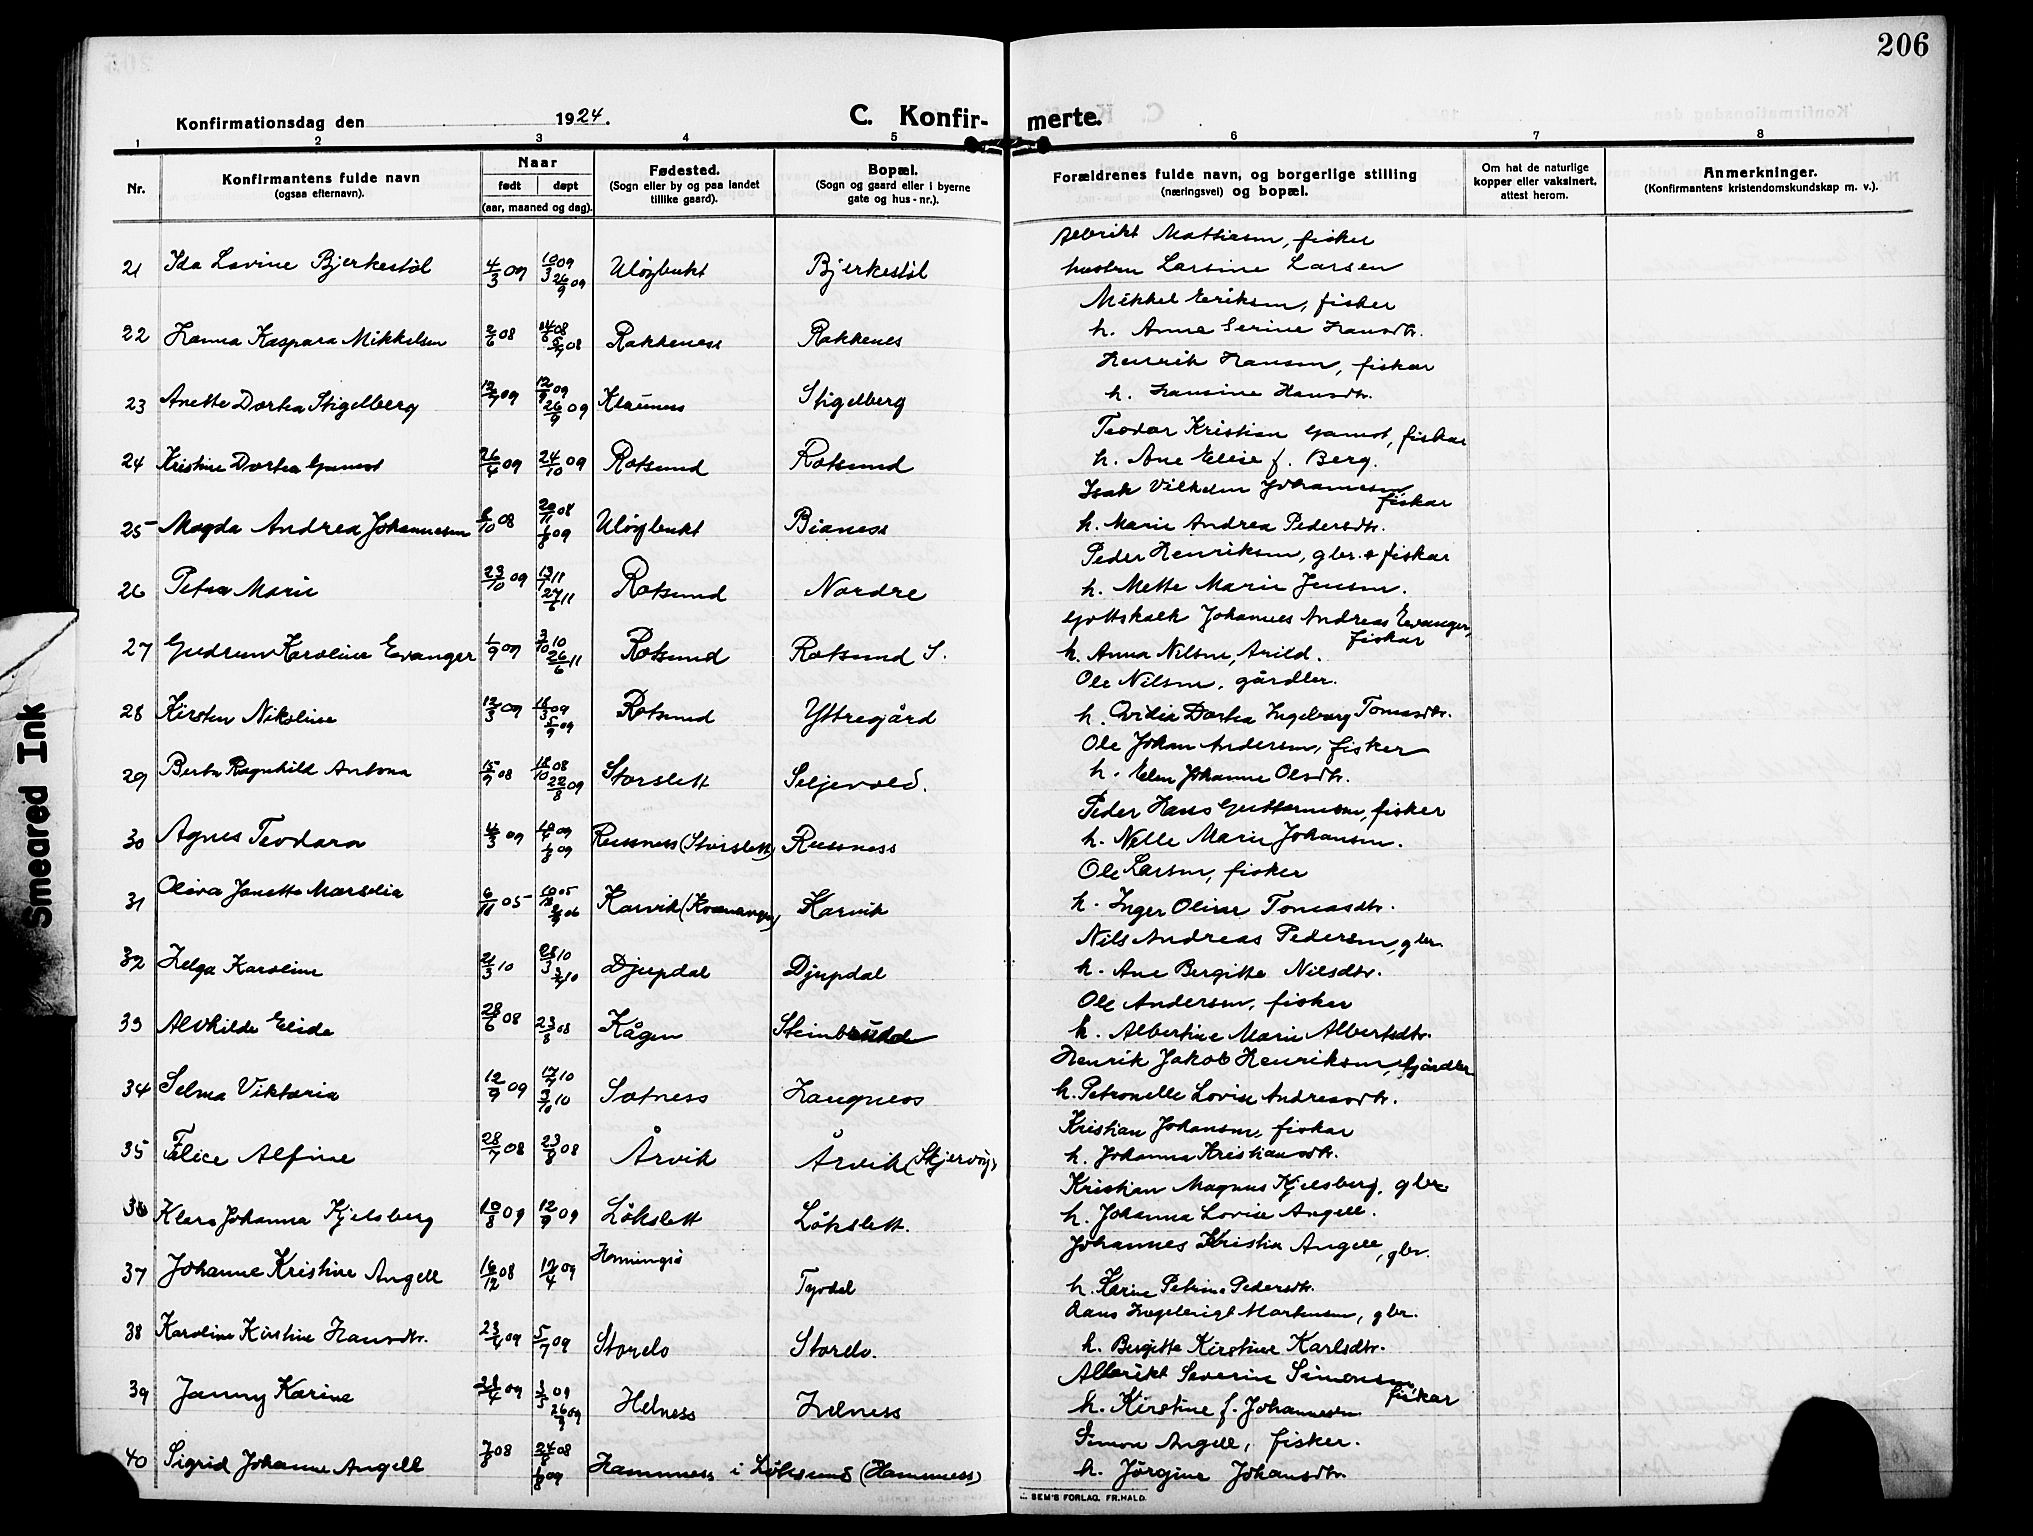 206
Konfirmationsdag den 1924.
C. Konfir- merte.
1 2 3 4 5 6 7 8
Nr.
Konfirmantens fulde navn
(ogsaa efternavn).
Naar
født døpt
(aar, maaned og dag).
Fødested.
(Sogn eller by og paa landet
tillike gaard).
Bopæl.
(Sogn og gaard eller i byerne
gate og hus-nr.).
Forældrenes fulde navn, og borgerlige stilling
(næringsvei) og bopæl.
Om hat de naturlige
kopper eller vaksinert,
attest herom.
Anmerkninger.
(Konfirmantens kristendomskundskap m. v.).
Mathiesen, fisker
21 Ida Lovine Bjerkestöl 4/3 09 10/3 09 26/9 09 Uløybukt Bjerkestöl hustru Larsine Larsen
Mikkel Eriksen, fisker
22 Hanna Kaspara Mikkelsen 2/6 08 14/6 08 5/7 08 Rakkeness Rakkenes h. Anne Serine Hansdtr.
Henrik Hansen, fisker
23 Anette Dortea Stigelberg 12/7 09 12/9 09 26/9 09 Klauness Stigelberg h. Hansine Hansdtr.
Teodor Kristian Gamst, fisker
24 Kristine Dortea Gamst 26/6 09 24/10 09 Rotsund Rotsund h. Ane Elise f. Berg.
Isak Vilhelm Johannesen
fisker
25 Magda Andrea Johannesen 8/10 08 20/11 08 1/8 09 Uløybukt Bianess h. Marie Andrea Pedersdtr.
Peder Henriksen, gbr. & fisker
26 Petra Marie 23/10 09 13/1 11 27/6 11 Rotsund Nordre h. Mette Marie Jensen.
Gottskalk Johannes Andreas Evanger,
fisker
27 Gudrun Karoline Evanger 1/9 09 3/10 10 26/6 11 Rotsund Rotsund S. h. Anna Nilsen, Arild.
Ole Nilsen, gårdbr.
28 Kirsten Nikoline 12/3 09 18/3 09 5/9 09 Rotsund Yttregård h. Ovidia Dortea Ingeborg Tomasdtr.
Ole Johan Andersen, fisker
29 Berta Ragnhild Antona 15/9 08 18/10 08 22/8 09 Storslett Seljevold. h. Elen Johanne Olsdtr.
Peder Hans Guttormsen, fisker
30 Agnes Teodora 4/3 09 10/4 09 1/8 09 Reissness (Storslett) Reissness h. Nelle Marie Johansen.
Ole Larsen, fisker
31 Oliva Janette Marselia 6/11 05 Karvik (Kvænangen) Karvik h. Inger Oline Tomasdtr.
Nils Andreas Pedersen, gbr.
32 Helga Karoline 21/3 10 28/3 10 3/7 10 Djupdal Djupdal h. Ane Bergitte Nilsdtr.
Ole Andersen, fisker
33 Alvhilde Elida 28/6 08 23/8 08 Kågen h. Albertine Marie Albertsdtr.
Henrik Jakob Henriksen, gårdbr
34 Selma Viktoria 12/9 09 17/7 10 9/10 10 Sotness Haugness h. Petronelle Lovise Andreasdtr.
Kristian Johansen, fisker
35 Felice Alfine 28/7 08 23/8 08 Årvik Årvik (Skjervøy) h. Johanna Kristiansdtr.
Kristian Magnus Kjelsberg, gbr
36 Klara Johanna Kjelsberg 10/8 09 12/9 09 Lökslett Lökslett. h. Johanna Lovise Angell.
Johannes Kristian Angell, gbr.
37 Johanne Kristine Angell 16/12 08 12/4 09 Honningsö Tyvdal h. Karine Petrine Pedersdtr.
Hans Ingebrigt Martensen, gbr.
38 Karoline Kirstine Hansdtr. 23/4 09 5/7 09 Storelv Storelv. h. Bergitte Kirstine Karlsdtr.
Albrikt Severin Simonsen
fisker
39 Janny Karine 28/4 09 26/9 09 Helness Helness h. Kirstine f. Johannesen
Simon Angell, fisker.
40 Sigrid Johanne Angell 7/8 08 24/8 08 1/8 09 Hamness i Löksund (Hamness) h. Jörgine Johansdtr.
SEM'S FORLAG. FR.HALD.
Smeared Ink